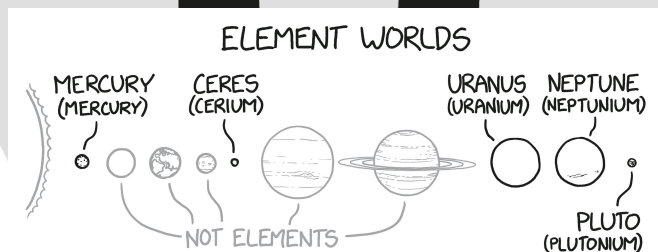 ELEMENT WORLDS
MERCURY
(MERCURY)
CERES
(CERIUM)
URANUS
(URANIUM)
NEPTUNE
(NEPTUNIUM)
NOT ELEMENTS
PLUTO
(PLUTONIUM)